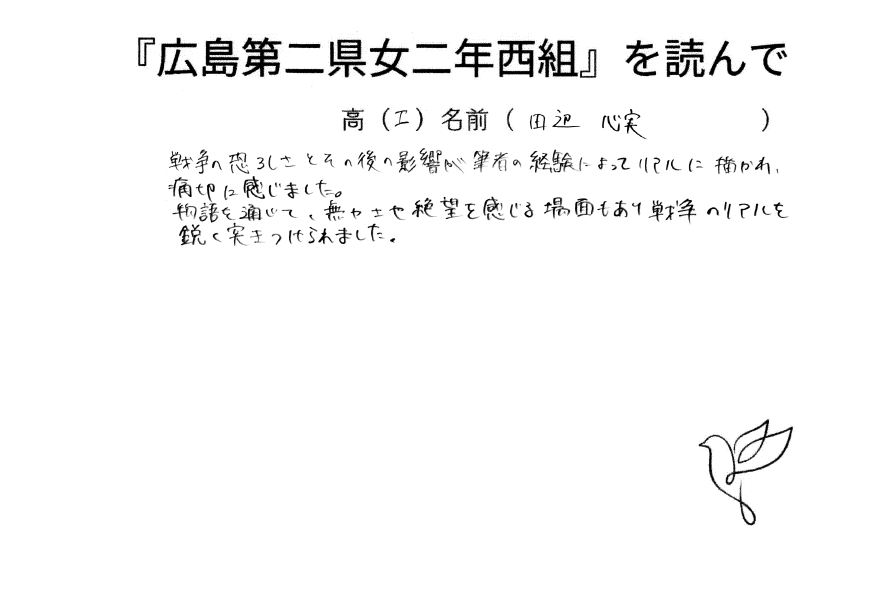 『広島第二県女二年西組』を読んで
高（エ）名前（田辺 心実）
戦争の恐ろしさとその後の影響が筆者の経験によってリアルに描かれ、
痛切に感じました。
物語を通じて、無力さや絶望を感じる場面もあり戦争のリアルを
鋭く突きつけられました。